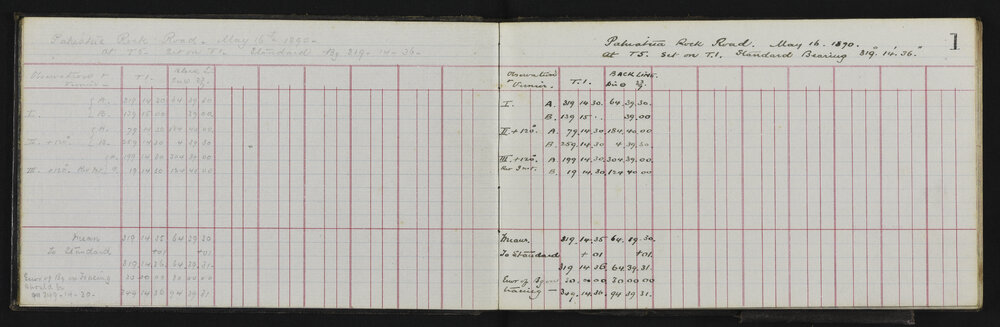 Rock Road. May 16th 1890.
At T5. Set on T.1. Standard Bg 319. 14. 36.
Observation & T.1. Back L
Vernier
I. A. 319. 14. 30 64. 39. 30.
B. 139. 15. 00 39. 00
A. 79. 14. 30 184. 40. 00.
II. + 120°. B. 259. 14. 30 4. 39. 30
A 199. 14. 30 304. 39. 00
III. 19. 14. 30 124. 40. 00
Mean 319. 14. 35 64. 39. 30.
To Standard +01 +01.
319. 14. 36. 64. 39. 31.
Error of Bg on tracing 30 00 00 30. 00. 00
should be 349. 14. 36 94 39. 31
1
Rock Road. May 16. 1890.
At T5. Set on T.1. Standard Bearing 319°. 14'. 36"
Observation T.1. BACK LINE.
& Vernier.
I. A. 319 14. 30. 64. 39. 30.
B. 139 15 . . 39. 00
II + 120°. A. 79. 14. 30. 184. 40. 00
B. 259. 14. 30 4. 39. 30
III. + 120° A 199 14. 30. 304. 39. 00.
Rev Inst. B. 19 14. 30. 124 40 00
Mean. 319. 14. 35 64. 39. 30.
To Standard + 01 +01.
319 14. 36 64. 39. 31.
Error of Bg on 30. 00 00 30 00 00
tracing — 349. 14. 36. 94 39. 31.